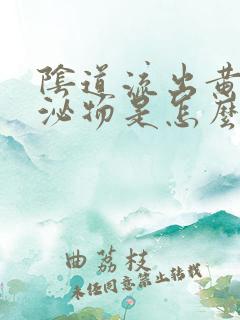 陰道流出黄
泌物是怎麼
曲荔枝
未经同意禁止转载